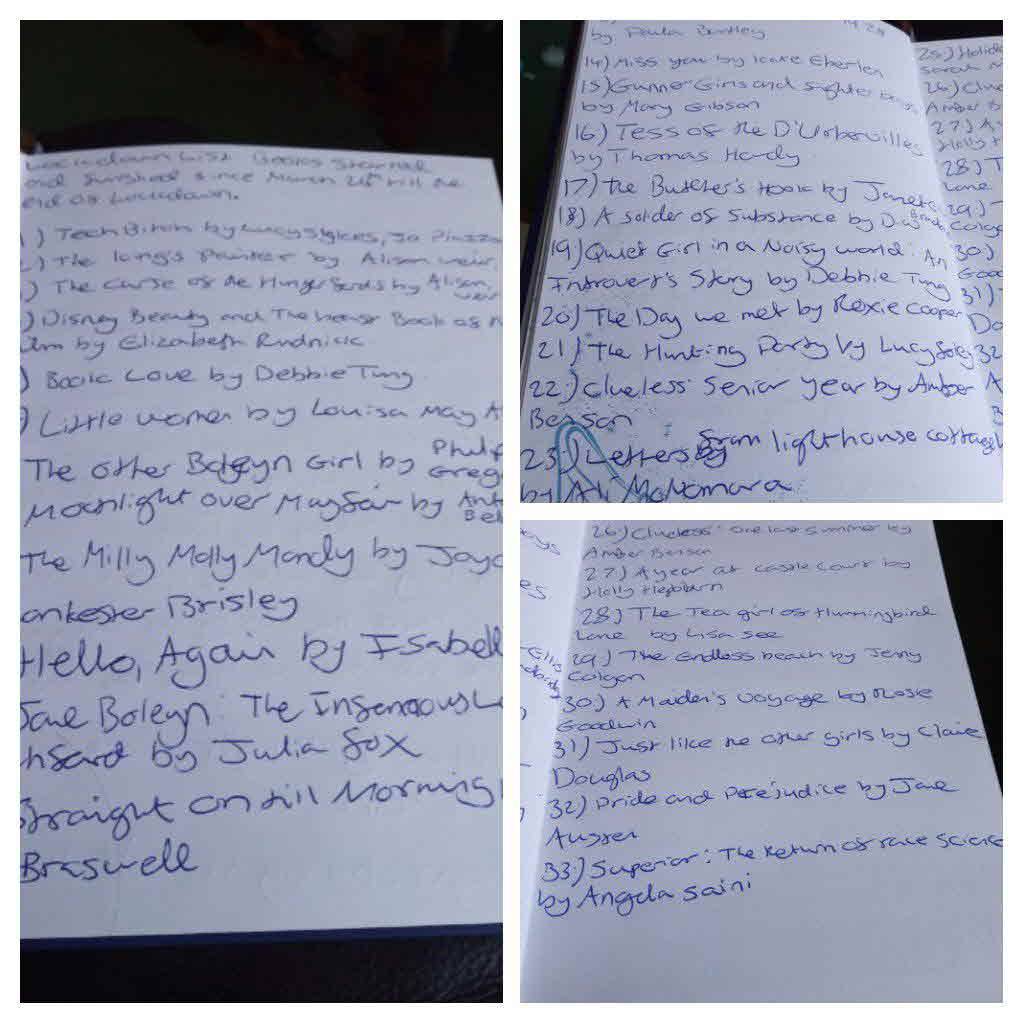 Lockdown List Books Started
and finished since March 24th till the
end of Lockdown.
) Tech Bitch by Lucy Sykes, Jo Piazza
) The King's Painter by Alison Weir,
) The Curse of the Hungerfords by Alison
Weir
) Disney Beauty and The beast Book of
film by Elizabeth Rudnick
) Book Love by Debbie Tung
) Little women by Louisa May A
The other Boleyn Girl by Philip
Greg
Moonlight over Mayfair by Ant
Bet
The Milly Molly Mandy by Joyc
ankester Brisley
Hello, Again by Isabell
Jane Boleyn: The Infamous L
by Julia Fox
Straight on till Morning
Braswell
by Paula
14) Miss you by Kate Eberlen
15) Gunner Girls and fighter boys
by Mary Gibson
16) Tess of the D'Urbervilles
by Thomas Hardy
17) The Butcher's Hook by Janet
18) A solider of Substance by D.
19) Quiet Girl in a Noisy world: An
Introvert's Story by Debbie Tung
20) The Day we met by Roxie Cooper
21) The Hunting Party by Lucy Foley
22) Clueless: Senior year by Amber
Benson
23) Letters from lighthouse cottage
by Ali McNamara
25) Holid
Sarah M
26) Clue
Amber B
27) A Y
Holly H
28) T
Lane
29)
Colga
30)
Good
31) T
Do
32
A
26) Clueless: one last summer by
Amber Benson
27) A year at castle court by
Holly Hepburn
28) The Tea girl of Hummingbird
Lane by Lisa See
29) The Endless beach by Jenny
Colgan
30) A Maiden's Voyage by Rosie
Goodwin
31) Just like the other girls by Claire
Douglas
32) Pride and Prejudice by Jane
Austen
33) Superior: The Return of race science
by Angela Saini